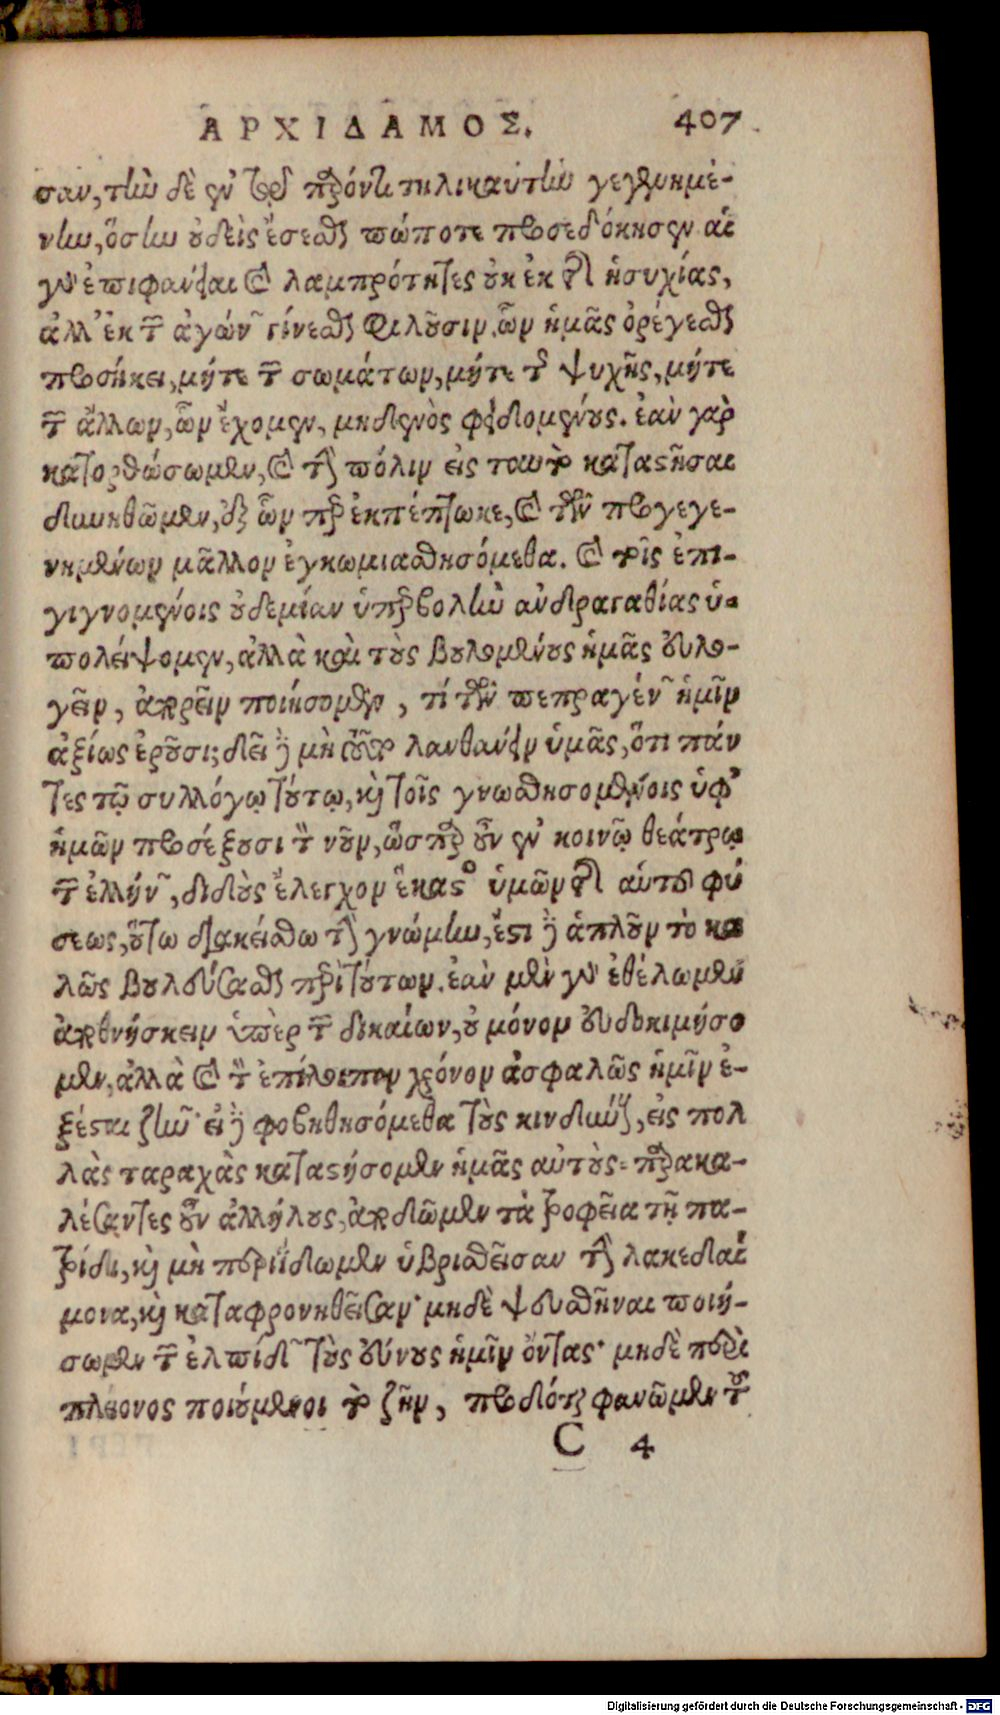 ΑΡΧΙΔΑΜΟΣ. 407
σαν, τὴν δὲ ἐν τῷ παρόντι τηλικαύτην γεγενημέ-
νην, ὅσην οὐδεὶς ἔσεσθαι πώποτε προσεδόκησεν αἱ
γὰρ ἐπιφάνειαι καὶ λαμπρότητες οὐκ ἐκ τῆς ἡσυχίας,
ἀλλ' ἐκ τῶν ἀγώνων γίνεσθαι φιλοῦσιν. ὧν ἡμᾶς ὀρέγεσθαι
προσήκει, μήτε τῶν σωμάτων, μήτε τῆς ψυχῆς, μήτε
τῶν ἄλλων, ὧν ἔχομεν, μηδενὸς φειδομένους. ἐὰν γὰρ
κατορθώσωμεν, καὶ τὴν πόλιν εἰς ταυτὸ καταστῆσαι
δυνηθῶμεν, ἐξ ὧνπερ ἐκπέπτωκε, καὶ τῶν προγεγε-
νημένων μᾶλλον ἐγκωμιασθησόμεθα. καὶ τοῖς ἐπι-
γιγνομένοις οὐδεμίαν ὑπερβολὴν ἀνδραγαθίας ὑ-
πολείψομεν, ἀλλὰ καὶ τοὺς βουλομένους ἡμᾶς εὐλο-
γεῖν, ἀπορεῖν ποιήσομεν, τί τῶν πεπραγμένων ἡμῖν
ἀξίως ἐροῦσι; δεῖ δὲ μὴ τοῦτο λανθάνειν ὑμᾶς, ὅτι πάν
τες τῷ συλλόγῳ τούτῳ, καὶ τοῖς γνωσθησομένοις ὑφ'
ἡμῶν προσέξουσι τὸν νοῦν, ὥσπερ οὖν ἐν κοινῷ θεάτρῳ
τῶν ἑλλήνων, διδοὺς ἔλεγχον ἕκαστος ὑμῶν τῆς αὑτοῦ φύ
σεως, οὕτω διακείσθω τὴν γνώμην, ἔστι δὲ ἁπλοῦν τὸ κα
λῶς βουλεύσασθαι περὶ τούτων. ἐὰν μὲν γὰρ ἐθέλωμεν
ἀποθνήσκειν ὑπὲρ τῶν δικαίων, οὐ μόνον εὐδοκιμήσο
μεν, ἀλλὰ καὶ τὸν ἐπίλοιπον χρόνον ἀσφαλῶς ἡμῖν ἐ-
ξέσται ζῆν· εἰ δὲ φοβηθησόμεθα τοὺς κινδύνους, εἰς πολ
λὰς ταραχὰς καταστήσομεν ἡμᾶς αὐτούς. παρακα-
λέσαντες οὖν ἀλλήλους, ἀποδῶμεν τὰ τροφεῖα τῇ πα-
τρίδι, καὶ μὴ περιΐδωμεν ὑβρισθεῖσαν τὴν λακεδαί
μονα, καὶ καταφρονηθεῖσαν· μηδὲ ψευσθῆναι ποιή-
σωμεν τῶν ἐλπίδων τοὺς εὔνους ἡμῖν ὄντας· μηδὲ περὶ
πλείονος ποιούμενοι τὸ ζῆν, προδόται φανῶμεν τοῦ
C 4
Digitalisierung gefördert durch die Deutsche Forschungsgemeinschaft - DFG